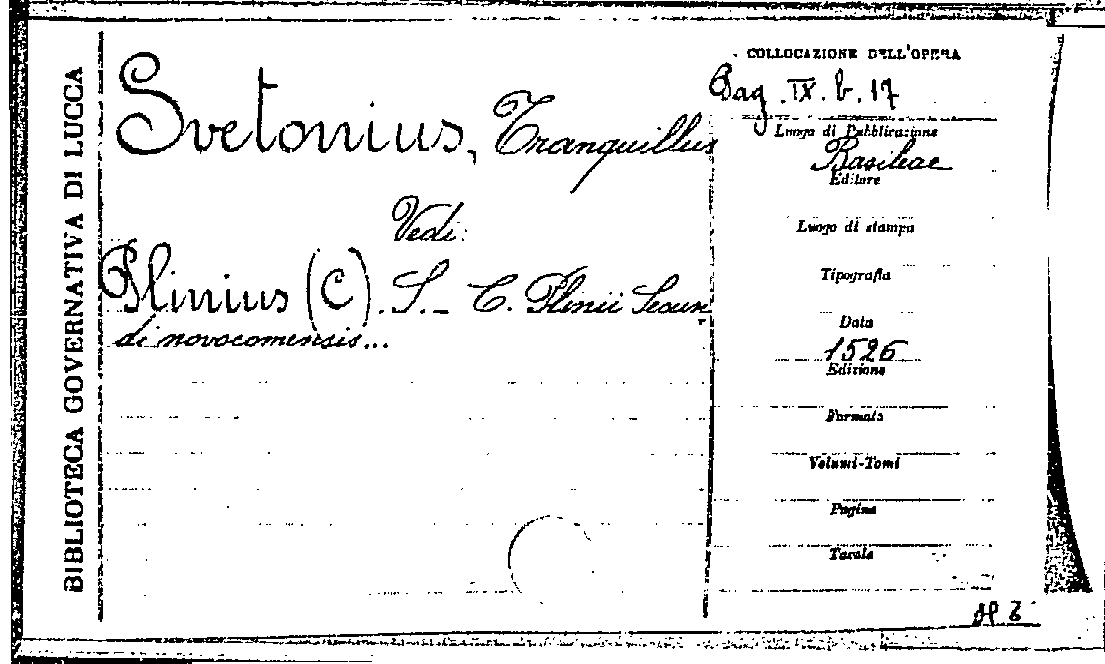 BIBLIOTECA GOVERNATIVA DI LUCCA
Svetonius, Tranquillus
Vedi:
Plinius (C). S. - C. Plinii Secun
di novocomensis...
COLLOCAZIONE DELL'OPERA
Bag. IX. b. 17
Luogo di Pubblicazione
Basileae
Editore
Luogo di stampa
Tipografia
Data
1526
Edizione
Formato
Volumi-Tomi
Pagine
Tavole